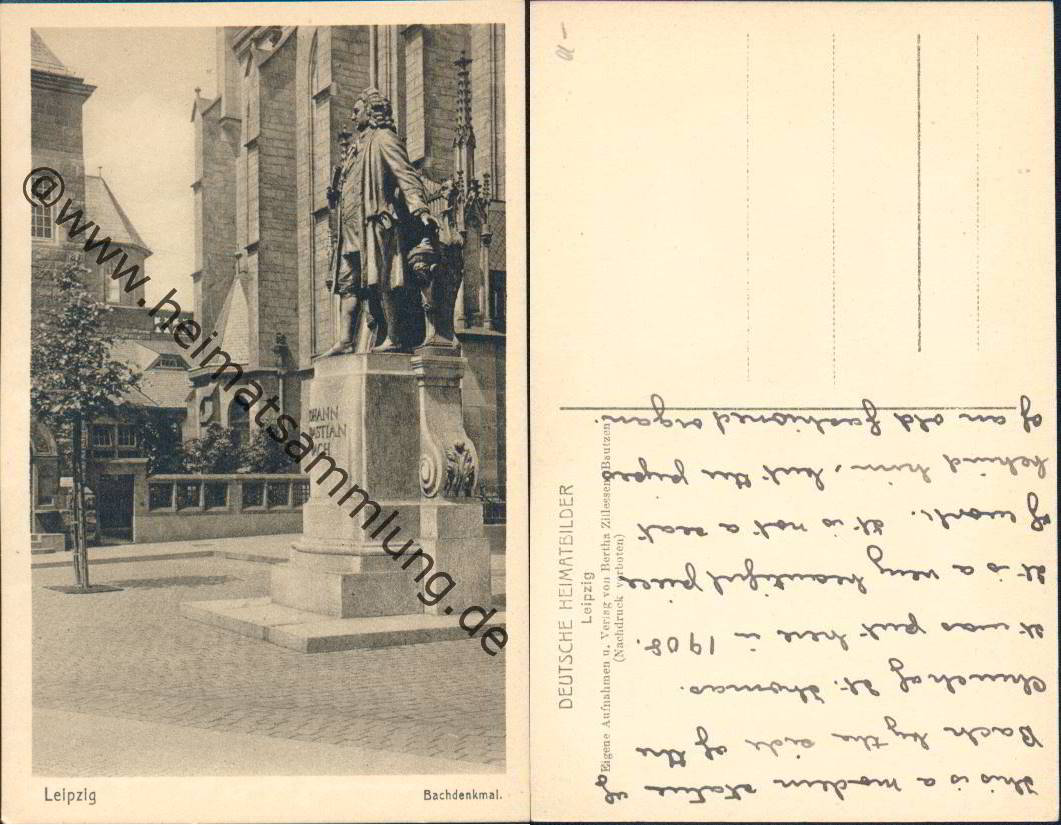 @www.heimatsammlung.de
JOHANN
SEBASTIAN
BACH
Leipzig
Bachdenkmal.
DEUTSCHE HEIMATBILDER
Leipzig
Eigene Aufnahmen u. Verlag von Bertha Zillessen Bautzen
(Nachdruck verboten)
This is a modern statue of
Bach by the side of the
Church of St. Thomas.
It was put here in 1908.
It is a very beautiful piece
of work. It is not a seat
behind him, but the pipes
of an old fashioned organ.